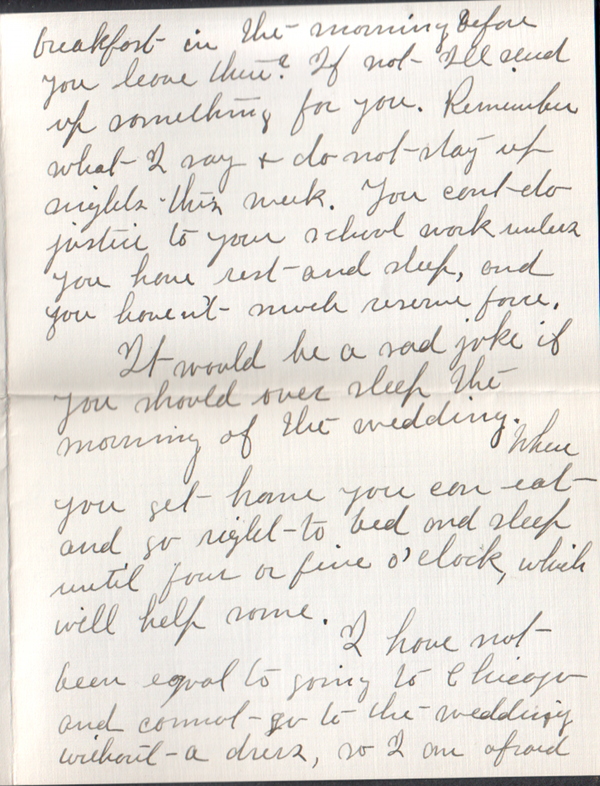 breakfast in the morning before
you leave there? If not I'll send
up something for you. Remember
what I say & do not stay up
nights this week. You cant do
justice to your school work unless
you have rest and sleep, and
you haven't much reserve force.
It would be a sad joke if
you should over sleep the
morning of the wedding. When
you get home you can eat
and go right to bed and sleep
until four or five o'clock, which
will help some. I have not
been equal to going to Chicago
and cannot go to the wedding
without a dress, so I am afraid